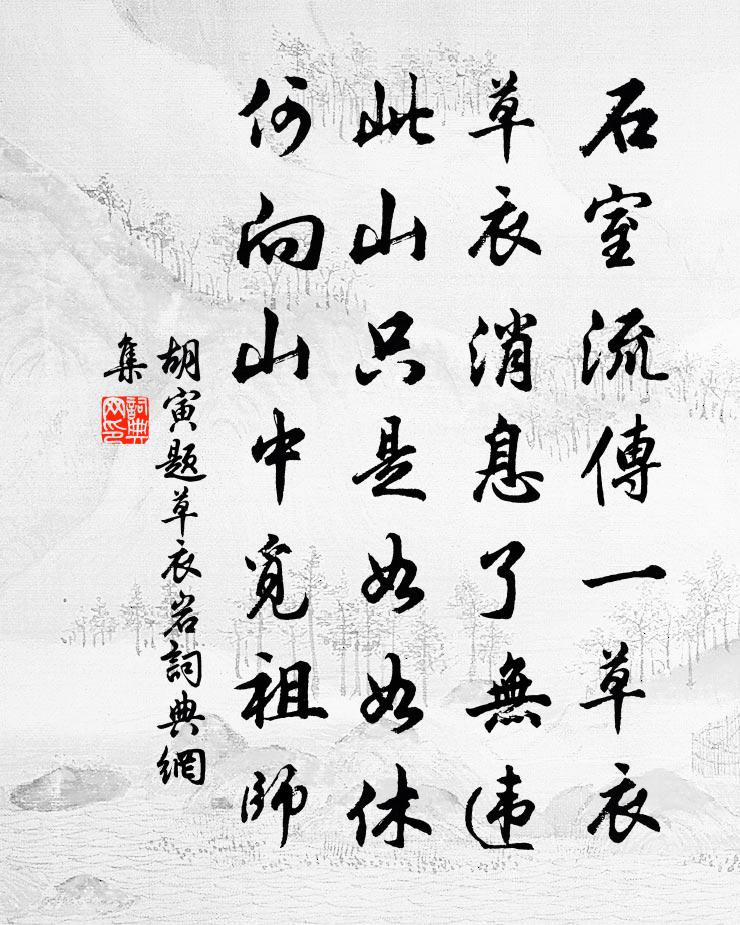 石室流傳一草衣
草衣消息了無违
此山只是如如休
何向山中覓祖師
胡寅題草衣岩詞典網
集
詞典
网印